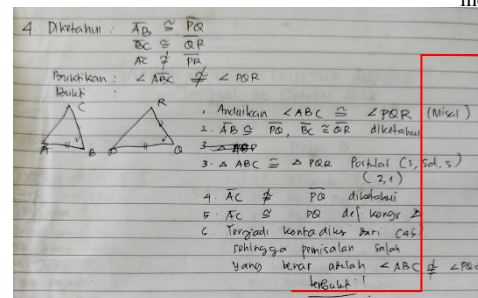 4. Diketahui : AB ≅ PQ
BC ≅ QR
AC ≇ PR
Buktikan : ∠ ABC ≇ ∠ PQR
Bukti :
C
R
A
B
P
Q
1. Andaikan ∠ABC ≅ ∠PQR (Misal)
2. AB ≅ PQ, BC ≅ QR diketahui
3. Δ ABC ≅ Δ PQR Postulat (s, sd, s)
(2,1)
4. AC ≇ PQ diketahui
5. AC ≅ PQ def kongr Δ
6. Terjadi kontradiksi dari (4,5)
sehingga pemisalan salah
yang benar adalah ∠ABC ≇ ∠PQR
terbukti !